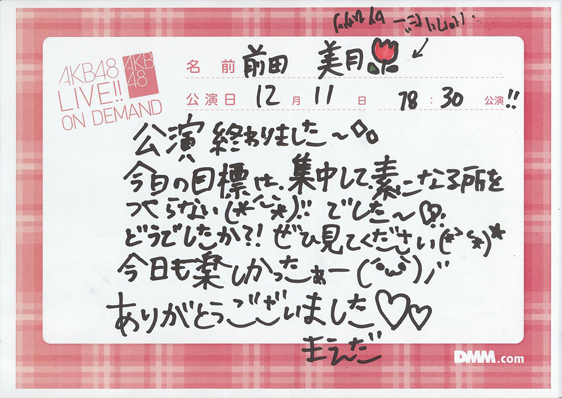 AKB48
LIVE!!
ON DEMAND
AKB
48
名 前 前田 美月
公演日 12 月 11 日 18:30 公演!!
公演終わりました〜
今日の目標は、集中して素になる所を
つくらない(*^^*)!! でした〜♡
どうでしたか?! ぜひ見てください(*^^*)*
今日も楽しかったぁー(^ω^)ノ゛
ありがとうございました♡♡
まえだ
DMM.com